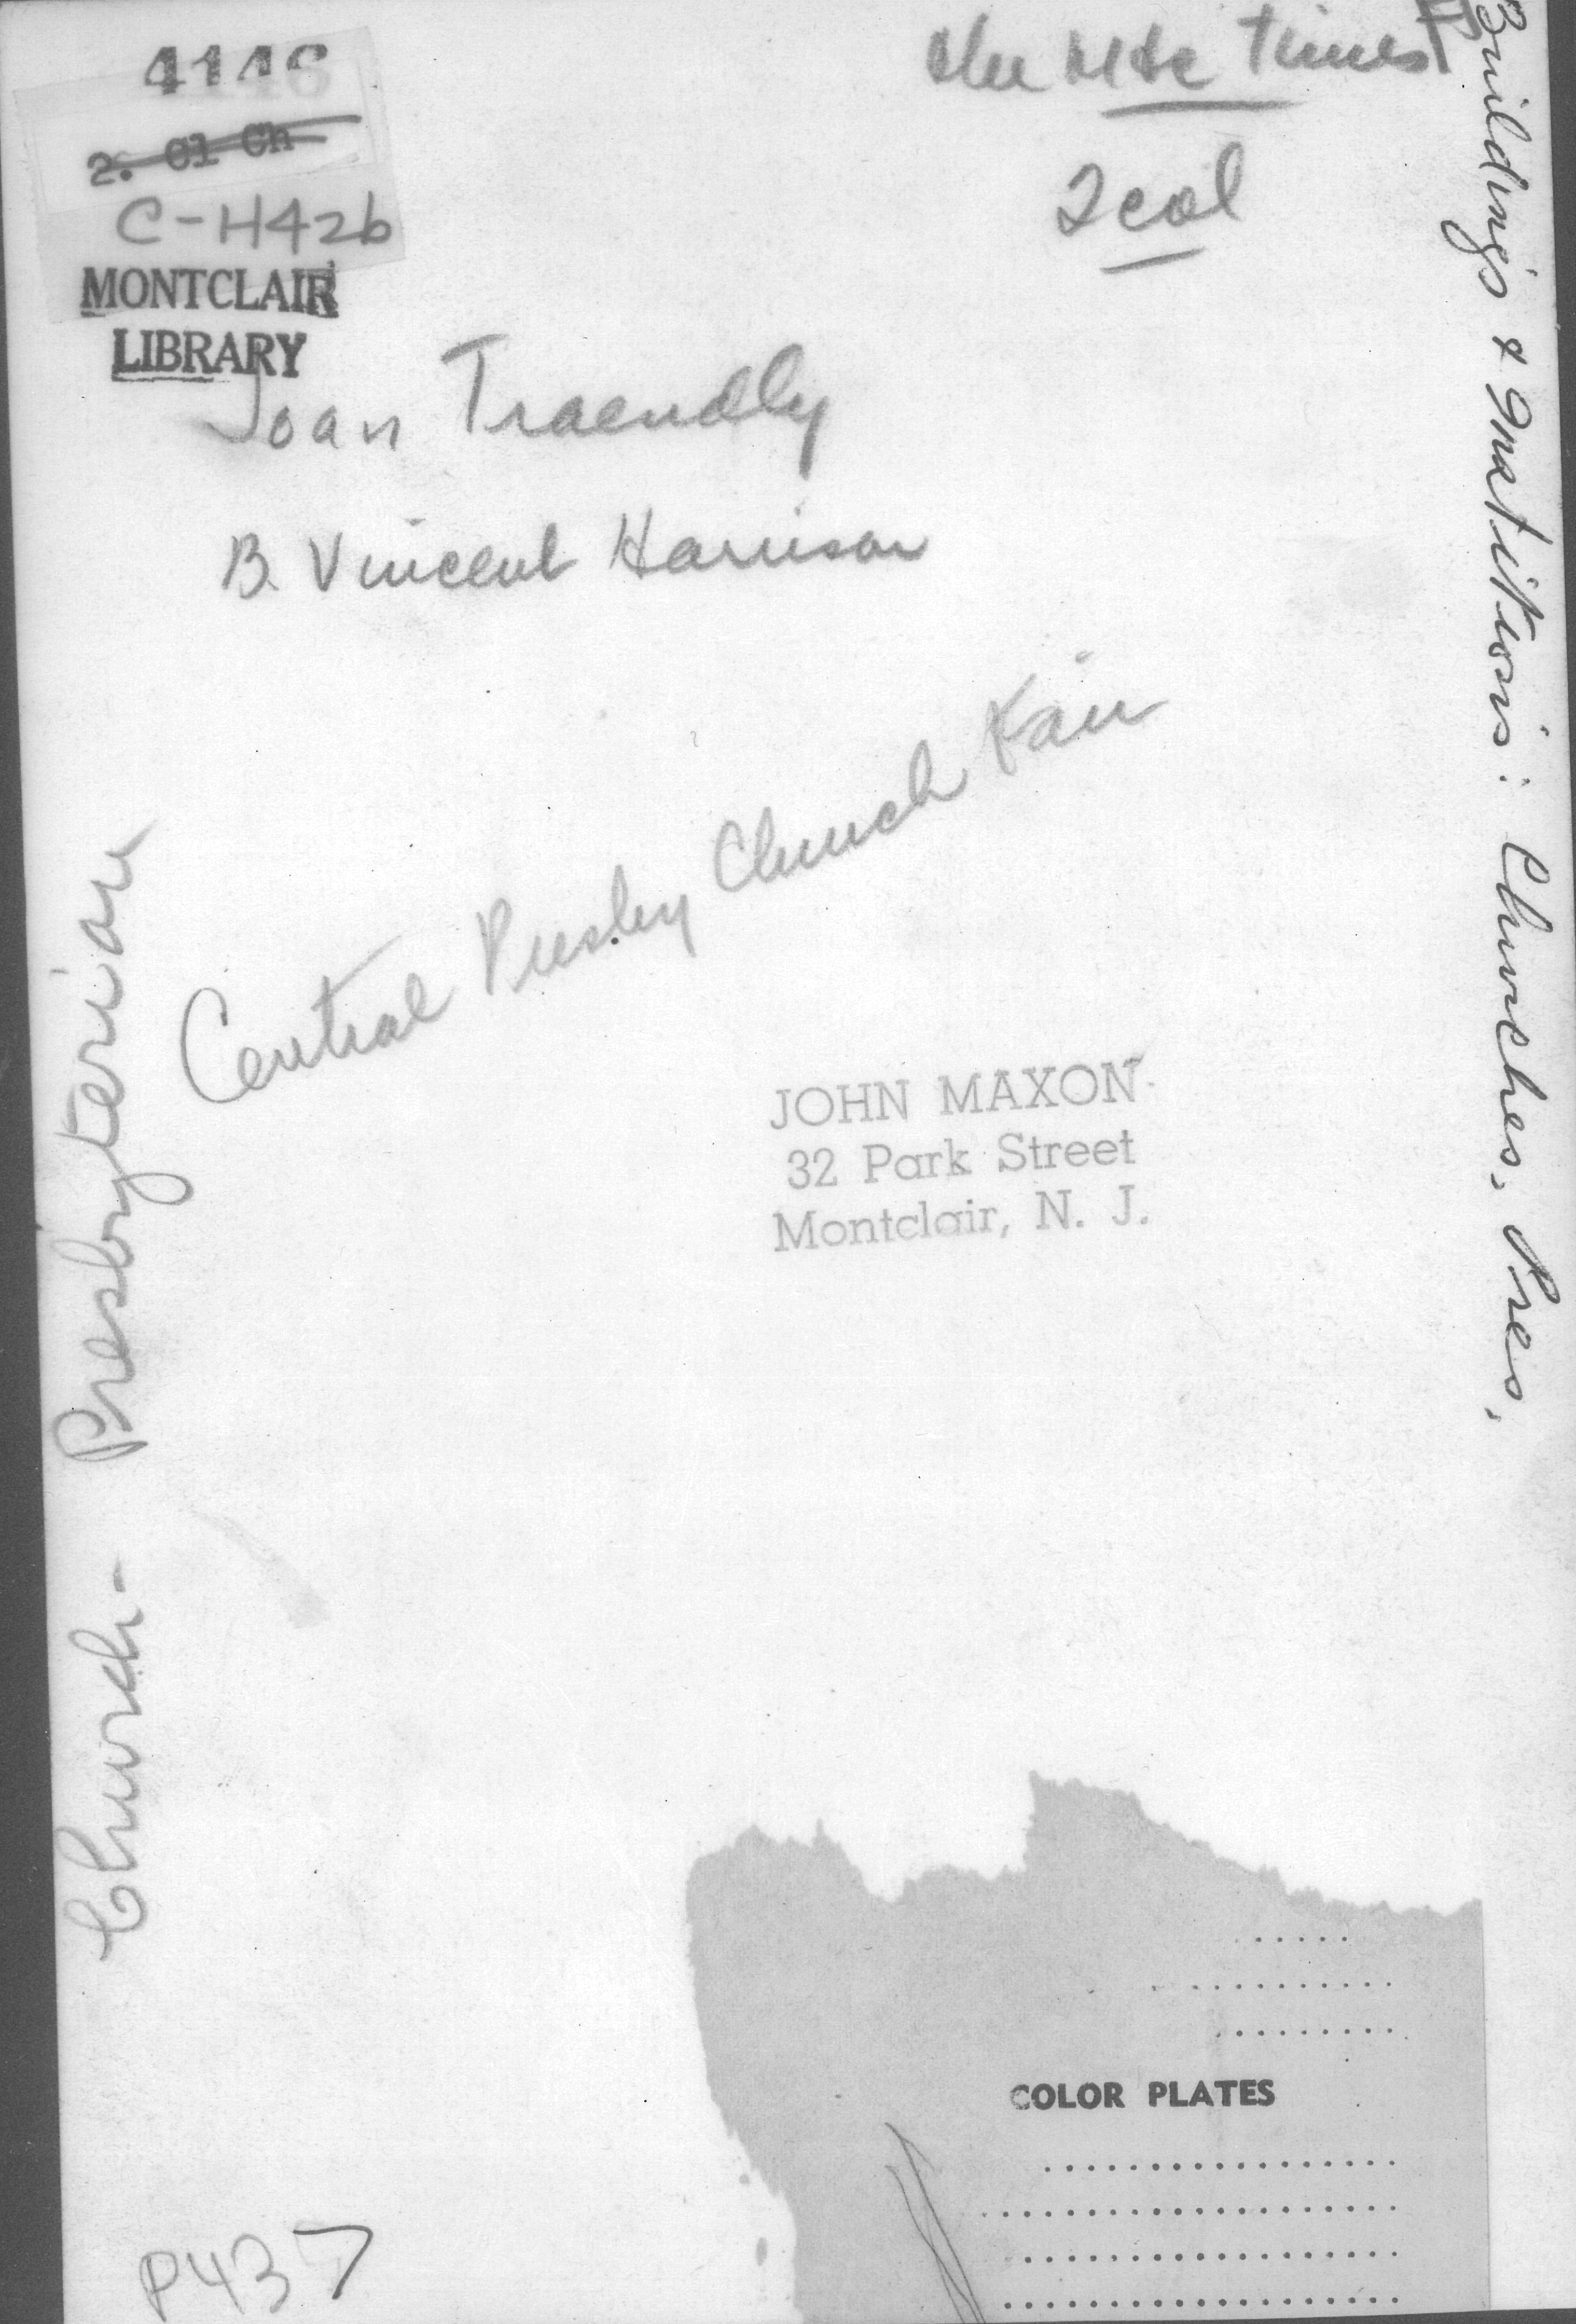 4146
2. Cl Ch
C-H426
MONTCLAIR
LIBRARY
The Mtc Times
2 col
Joan Traendly
B. Vincent Harrison
Central Presby Church Fair
JOHN MAXON
32 Park Street
Montclair, N. J.
Church - Presbyterian
Buildings & Institutions: Churches, Pres.
COLOR PLATES
P437